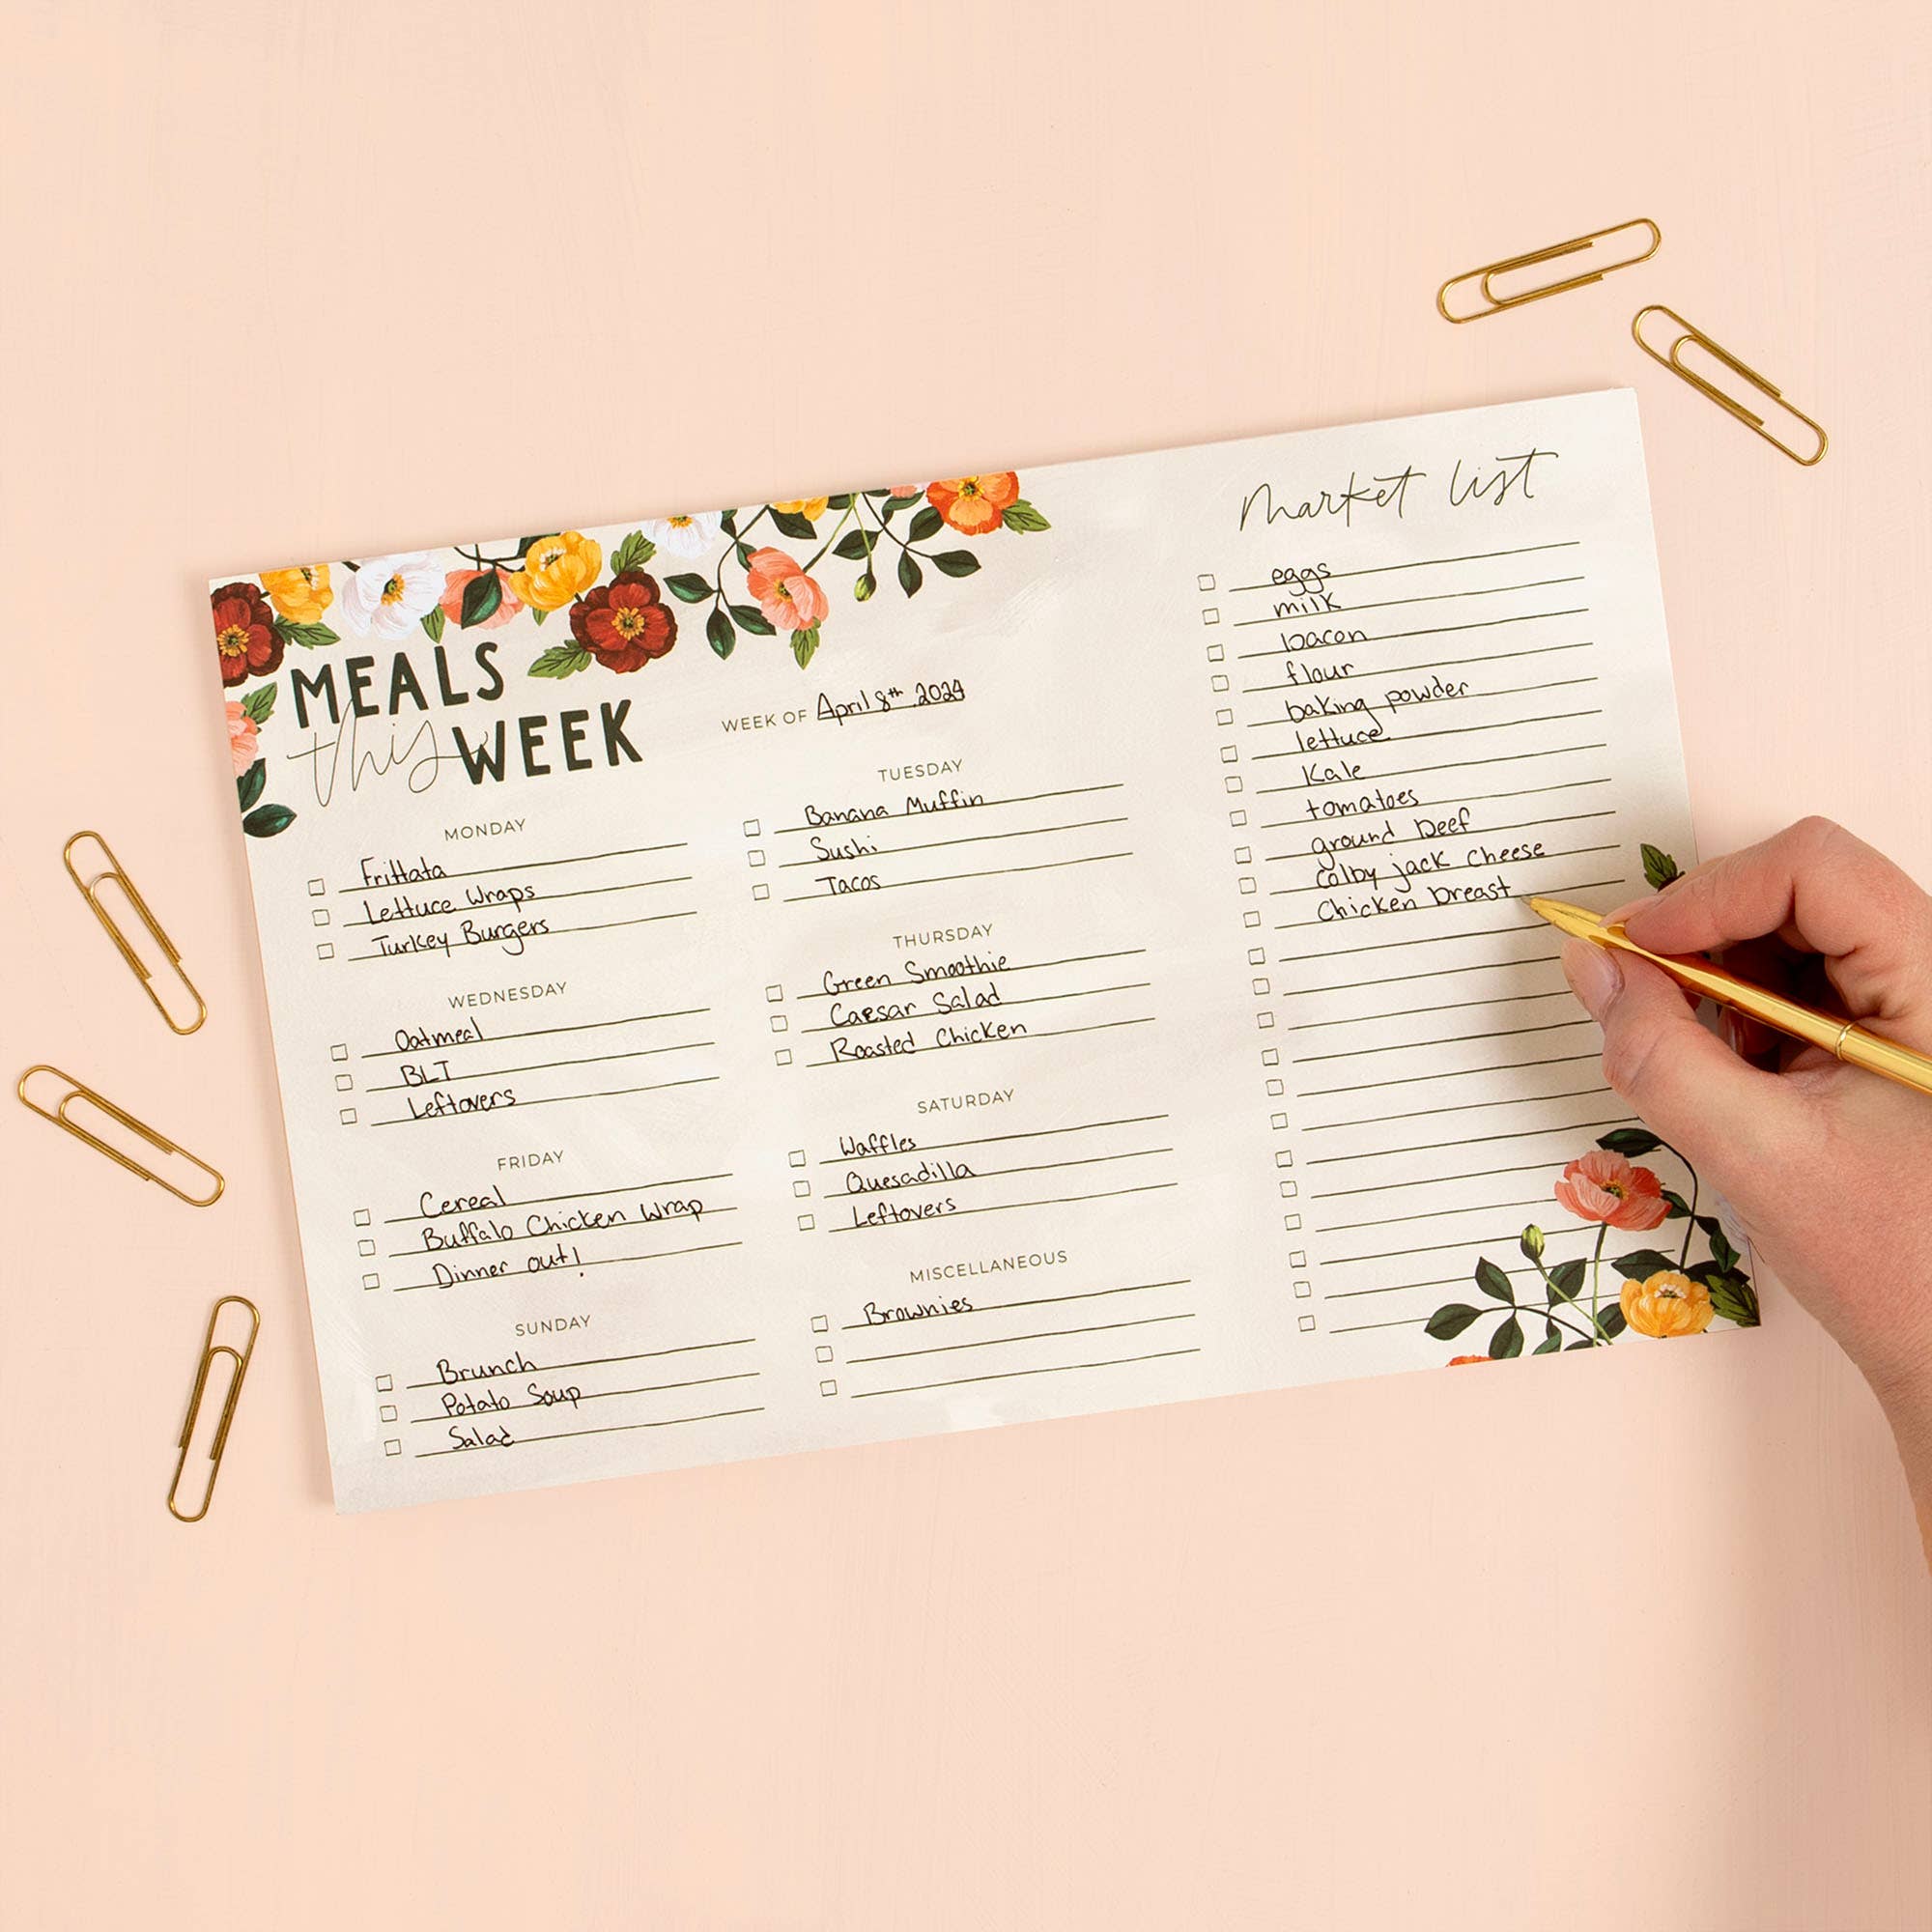 MEALS
this WEEK
WEEK OF April 8th, 2024
MONDAY
Frittata
Lettuce Wraps
Turkey Burgers
TUESDAY
Banana Muffin
Sushi
Tacos
WEDNESDAY
Oatmeal
BLT
Leftovers
THURSDAY
Green Smoothie
Caesar Salad
Roasted Chicken
FRIDAY
Cereal
Buffalo Chicken Wrap
Dinner out!
SATURDAY
Waffles
Quesadilla
Leftovers
SUNDAY
Brunch
Potato Soup
Salad
MISCELLANEOUS
Brownies
market list
eggs
milk
bacon
flour
baking powder
lettuce
Kale
tomatoes
ground beef
Colby jack cheese
Chicken breast